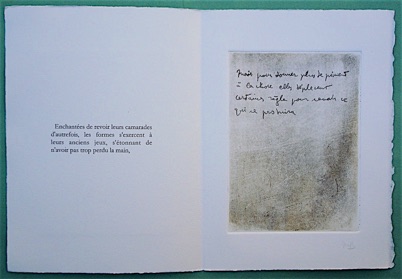 Enchantées de revoir leurs camarades
d'autrefois, les formes s'exercent à
leurs anciens jeux, s'étonnant de
n'avoir pas trop perdu la main,
pour donner plus de piment
à la chose elles
certaines règle pour rendre ce
qui se